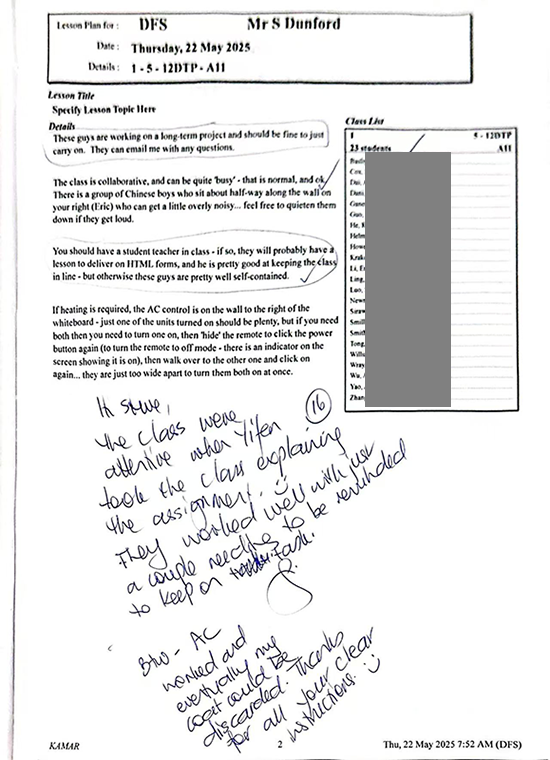 Lesson Plan for : DFS Mr S Dunford
Date : Thursday, 22 May 2025
Details : 1 - 5 - 12DTP - A11
Lesson Title
Specify Lesson Topic Here
Details
These guys are working on a long-term project and should be fine to just
carry on. They can email me with any questions.
The class is collaborative, and can be quite 'busy' - that is normal, and ok.
There is a group of Chinese boys who sit about half-way along the wall on
your right (Eric) who can get a little overly noisy... feel free to quieten them
down if they get loud.
You should have a student teacher in class - if so, they will probably have a
lesson to deliver on HTML forms, and he is pretty good at keeping the class
in line - but otherwise these guys are pretty well self-contained.
If heating is required, the AC control is on the wall to the right of the
whiteboard - just one of the units turned on should be plenty, but if you need
both then you need to turn one on, then 'hide' the remote to click the power
button again (to turn the remote to off mode - there is an indicator on the
screen showing it is on), then walk over to the other one and click on
again... they are just too wide apart to turn them both on at once.
Class List
1 5 - 12DTP
23 students A11
Cox,
Gao,
He,
Li,
Ling,
Luo,
Smit
Tong,
Wu,
Yao,
Zhan
Hi Steve,
16
The class were
attentive when Yifen
took the class explaining
the assignment. :)
They worked well with just
a couple needing to be reminded
to keep on task.
Btw - AC
worked and
eventually my
coat could be
discarded. Thanks
for all your clear
instructions. :)
KAMAR 2 Thu, 22 May 2025 7:52 AM (DFS)